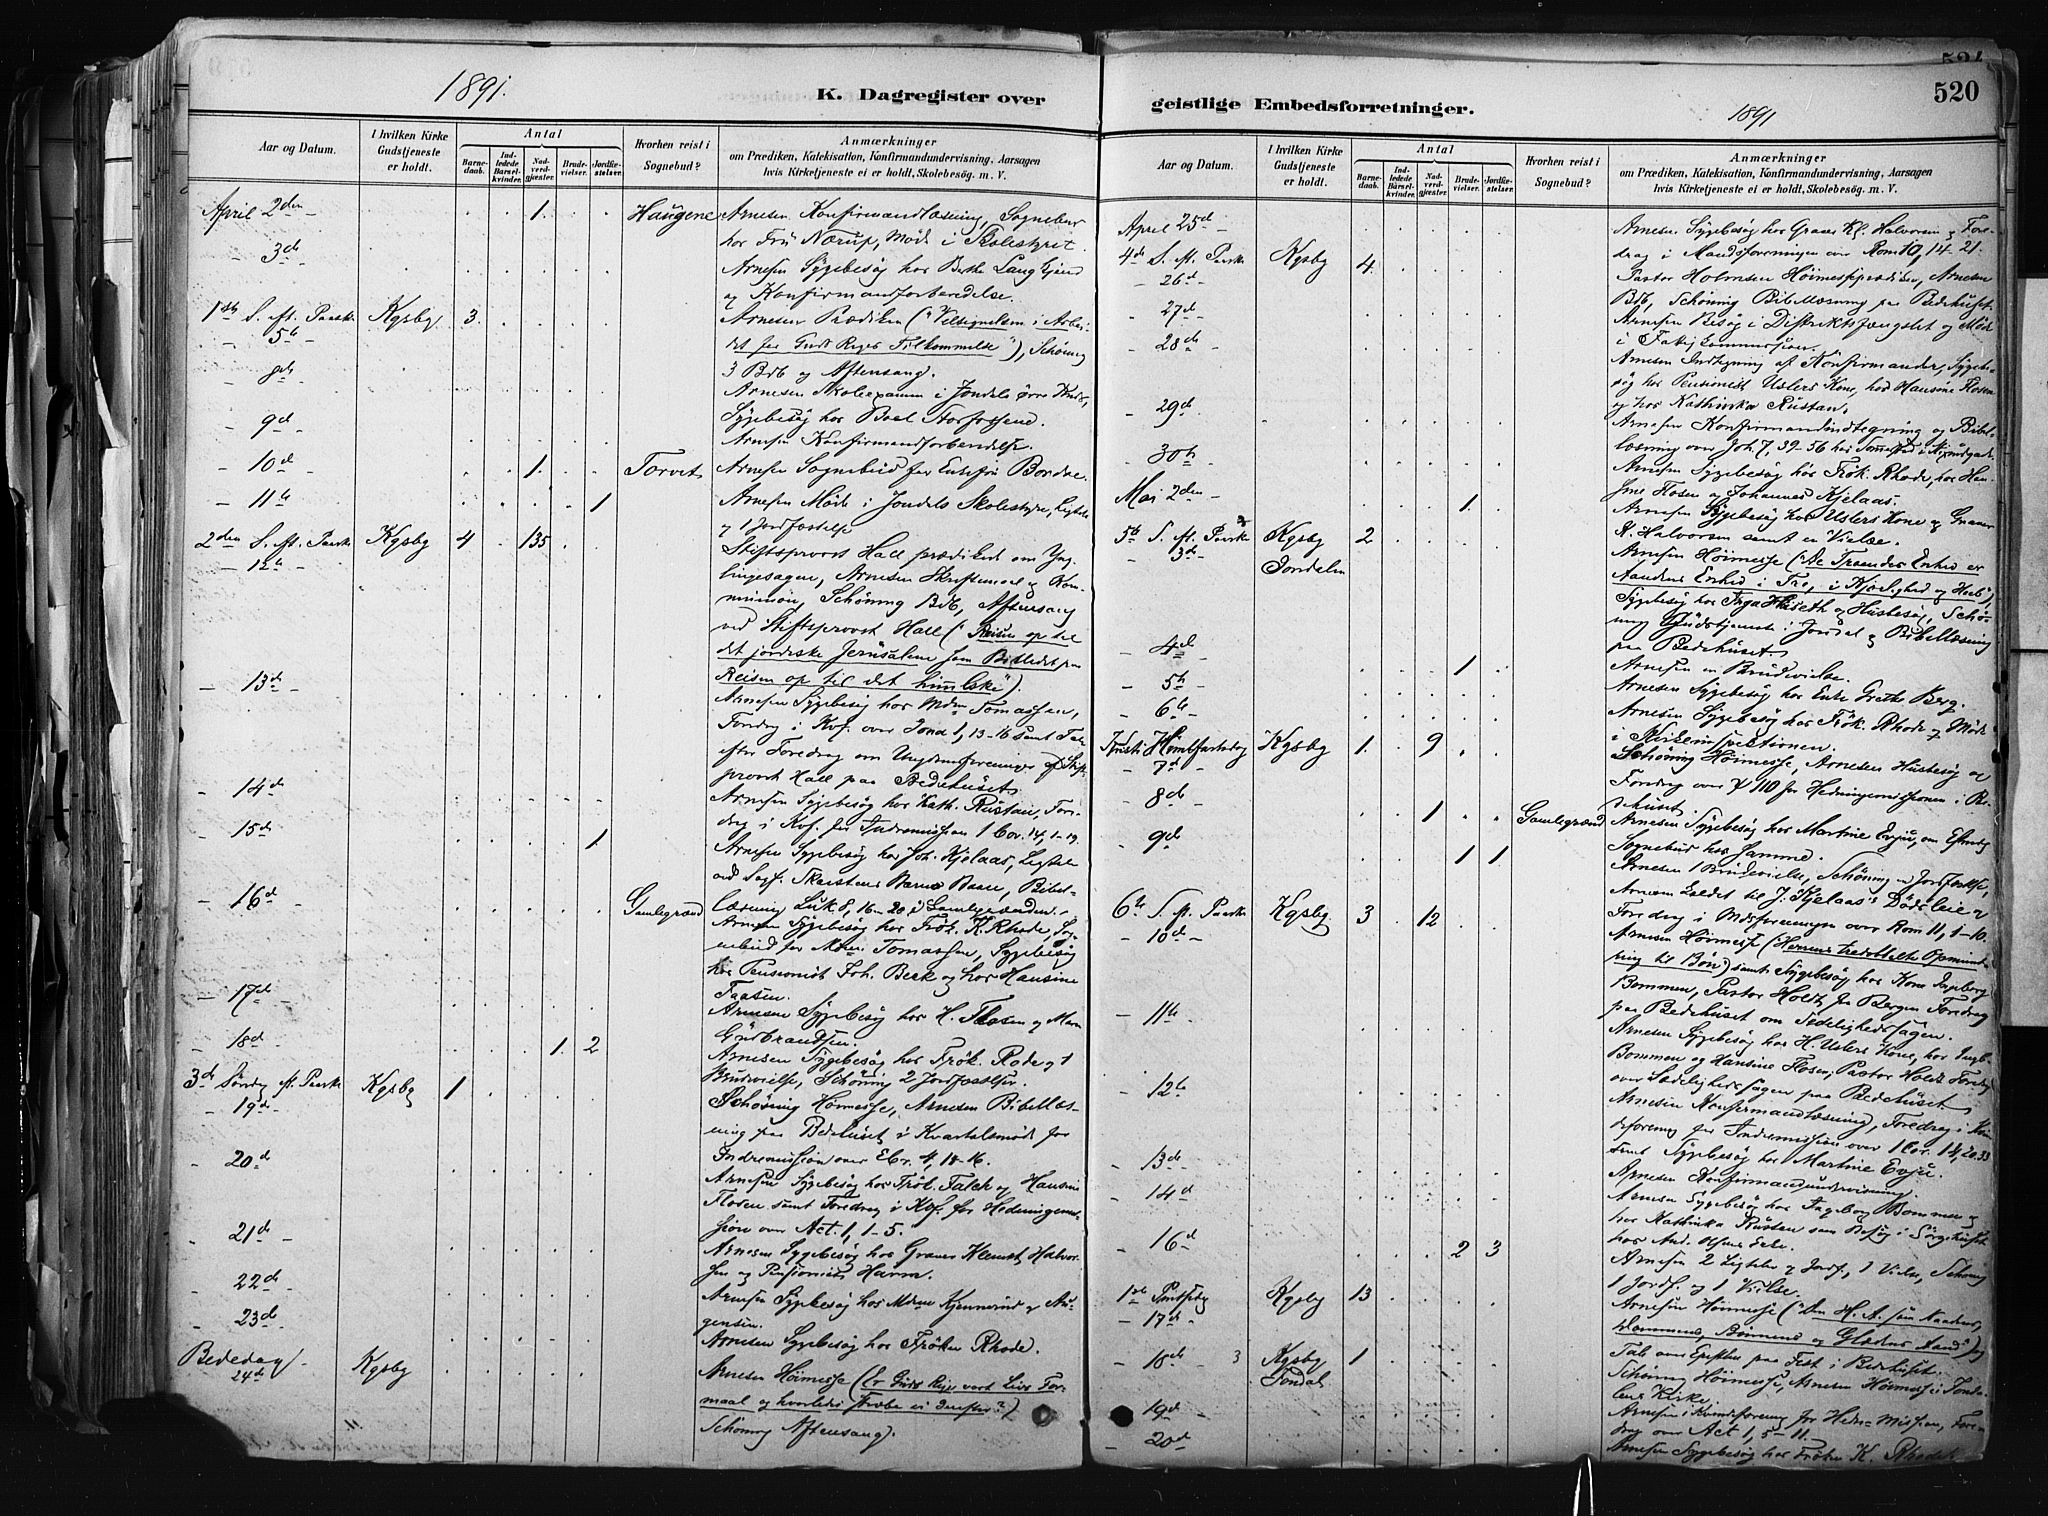 1891.
K. Dagregister over
Aar og Datum.
I hvilken Kirke
Gudstjeneste
er holdt.
Antal
Barne-
daab.
Ind-
ledede
Barsel-
kvinder.
Nad-
verd-
gjæster.
Brude-
vielser.
Jordfæ-
stelser.
Hvorhen reist i
Sognebud?
Anmærkninger
om Prædiken, Katekisation, Konfirmandundervisning, Aarsagen
hvis Kirketjeneste ei er holdt, Skolebesøg. m. V.
April 2den 1. Haugene Arnesen Konfirmandlæsning, Sognebud
hos Fru Nærup, Møde i Skolestyret.
- 3de - Arnesen Sygebesøg hos Berthe Langgjerd
og Konfirmandforberedelse.
1ste S. eft. Paaske Kgsby 3. Arnesen Prædiken ("Velsignelsen i Arbei-
- 5te - det for Guds Riges Tilkommelse"), Schøning
3 Brb og Aftensang.
- 8de - Arnesen Skoleexamen i Jondals øvre Kreds,
Sygebesøg hos Boel
- 9de - Arnesen Konfirmandforberedelse.
- 10de - 1. Torvet Arnesen Sognebud for Enkefru
- 11te - 1 Arnesen Møde i Jondals Skolestyre, Ligtale
og 1 Jordfæstelse
2den S. eft. Paaske Kgsby 4 135 Stiftsprovst Hall prædikede om Yng-
- 12te - lingesagen, Arnesen Skriftemaal og Kom-
munion, Schøning Brb, Aftensang
ved Stiftsprovst Hall ("Reisen op til
det jordiske Jerusalem som Billedet paa
Reisen op til det himlske").
- 13de - Arnesen Sygebesøg hos Mdm Tomassen,
Foredrag i Kvf. over Jona 1, 13-16 samt Tale
efter Foredrag om Ungdomsforeninger af Stift-
provst Hall paa Bedehuset
- 14de - Arnesen Sygebesøg hos Kath. Rustan, Fore-
drag i Kvf. for Indremission 1 Cor. 14, 1-19
- 15de - 1 Arnesen Sygebesøg hos Joh. Kjelaas, Ligtale
ved Baare, Bibel-
læsning Luk 8, 16-20 i Gamlegrænden.
- 16de - Gamlegrænd Arnesen Sygebesøg hos Frøk. K. Rhode, Sog-
nebud for Mdm Tomassen, Sygebesøg
hos Pensionist Joh. Beck og hos Hansine
Flaasen.
- 17de - Arnesen Sygebesøg hos H. Flosen og Maren
Gudbrandsen.
- 18de - 1. 2 Arnesen Sygebesøg hos Frøk. Rode og 1
Brudvielse, Schøning 2 Jordfæstelser.
3de Søndag eft. Paaske Kgsby 1 Schøning Høimesse, Arnesen Bibellæs-
- 19de - ning paa Bedehuset i Kvartalsmøde for
Indremission over Ebr. 4, 14-16.
- 20de - Arnesen Sygebesøg hos Frøk. Falch og Hansine
Flosen samt Foredrag i Kvf. for Hedningemis-
sion over Act. 1, 1-5.
- 21de - Arnesen Sygebesøg hos Graver Klemet Halvor-
sen og Pensionist
- 22de - Arnesen Sygebesøg hos Mdme og Au-
gensen.
- 23de - Arnesen Sygebesøg hos Frøken Rhode.
Bededag Kgsby Arnesen Høimesse (Er Guds Rige vort Livs For-
24de maal og hvorledes
Schøning Aftensang).
520
geistlige Embedsforretninger.
1891
Aar og Datum.
I hvilken Kirke
Gudstjeneste
er holdt.
Antal
Barne-
daab.
Ind-
ledede
Barsel-
kvinder.
Nad-
verd-
gjæster.
Brude-
vielser.
Jordfæ-
stelser.
Hvorhen reist i
Sognebud?
Anmærkninger
om Prædiken, Katekisation, Konfirmandundervisning, Aarsagen
hvis Kirketjeneste ei er holdt, Skolebesøg. m. V.
April 25de - Arnesen Sygebesøg hos Graver Kl. Halvorsen og Fore-
drag i Mandsforeningen over Rom 10, 14-21.
4de S. eft. Paaske Kgsby 4. Pastor Holmsen Høimesseprædiken, Arnesen
- 26de - Brb, Schøning Bibellæsning paa Bedehuset.
- 27de - Arnesen Besøg i Distriktsfængslet og Møde
i Fattigkommissionen.
- 28de - Arnesen Indtegning af Konfirmander, Sygebe-
søg hos Pensionist Uslers Kone, hos Hansine Flosen
og hos Kathinka Rustan.
- 29de - Arnesen Konfirmandindtegning og Bibel-
læsning over Joh. 7, 39-56 hos
- 30te - Arnesen Sygebesøg hos Frøk. Rhode, hos Han-
sine Flosen og Johannes Kjelaas.
Mai 2den - 1. Arnesen Sygebesøg hos Uslers Kone og Graver
K. Halvorsen samt en Vielse.
5te S. eft. Paaske Kgsby 2 Arnesen Høimesse ("De Troendes Enhed er
- 3de - Jondalen Aandens Enhed i Tro, i Kjærlighed og Haab"),
Sygebesøg hos Inga og Husbesøg, Schø-
ning Gudstjeneste i Jondal og Bibellæsning
paa Bedehuset.
- 4de - 1 Arnesen en Brudevielse.
- 5te - Arnesen Sygebesøg hos Enke Grethe Berg.
- 6te - Arnesen Sygebesøg hos Frøk. Rhode og Møde
i Kirkeinspektionen.
Kristi Himmelfartsdag Kgsby 1. 9 Schøning Høimesse, Arnesen Husbesøg og
- 7de - Foredrag over Ψ 110 for Hedningemissionen i Be-
dehuset.
- 8de - 1 Gamlegrænd Arnesen Sygebesøg hos Martine Evju, om Efterm.
Sognebud hos samme.
- 9de - 1 1 Arnesen 1 Brudevielse, Schøning en Jordfæstelse,
Arnesen kaldet til J. Kjelaas's Dødsleie og
Foredrag i Mdsforeningen over Rom 11, 1-10.
6te S. eft. Paaske Kgsby. 3 12 Arnesen Høimesse (Herrens tredobbelte Opmunt-
- 10de - ring til Bøn) samt Sygebesøg hos Kone Ingeborg
Bommen, Pastor Holdt fra Bergen Foredrag
paa Bedehuset om Sædelighedssagen.
- 11te - Arnesen Sygebesøg hos H. Uslers Kone, hos Ingb.
Bommen og Hansine Flosen; Pastor Holdt Foredrag
over Sædelighedssagen paa Bedehuset.
- 12te - Arnesen Konfirmandlæsning, Foredrag i Kvin-
deforening for Indremission over 1 Cor. 14, 20-33
samt Sygebesøg hos Martine Evju.
- 13de - Arnesen Konfirmandundervisning.
- 14de - Arnesen Sygebesøg hos Ingeborg Bommen og
hos Kathinka Rustan som Besøg i Sørgehuset
hos And. Olsens Enke.
- 16de - 2 3 Arnesen 2 Ligtaler og Jordf., 1 Vielse, Schøning
1 Jordf. og 1 Vielse.
1ste Pintsedag Kgsby 13 Arnesen Høimesse ("Den H. A. som Naadens,
- 17de - Dommens, Bønnens og Glædens Aand") og
Tale over Epistlen paa Fest i Bedehuset.
- 18de - Kgsby 1 Schøning Høimesse, Arnesen Høimesse i Jonda-
Jondal lens Kirke
- 19de - Arnesen i Kvindeforening for Hedn= Mission, Fore-
drag over Act 1, 5-11.
- 20de - Arnesen Sygebesøg hos Frøken K. Rhode